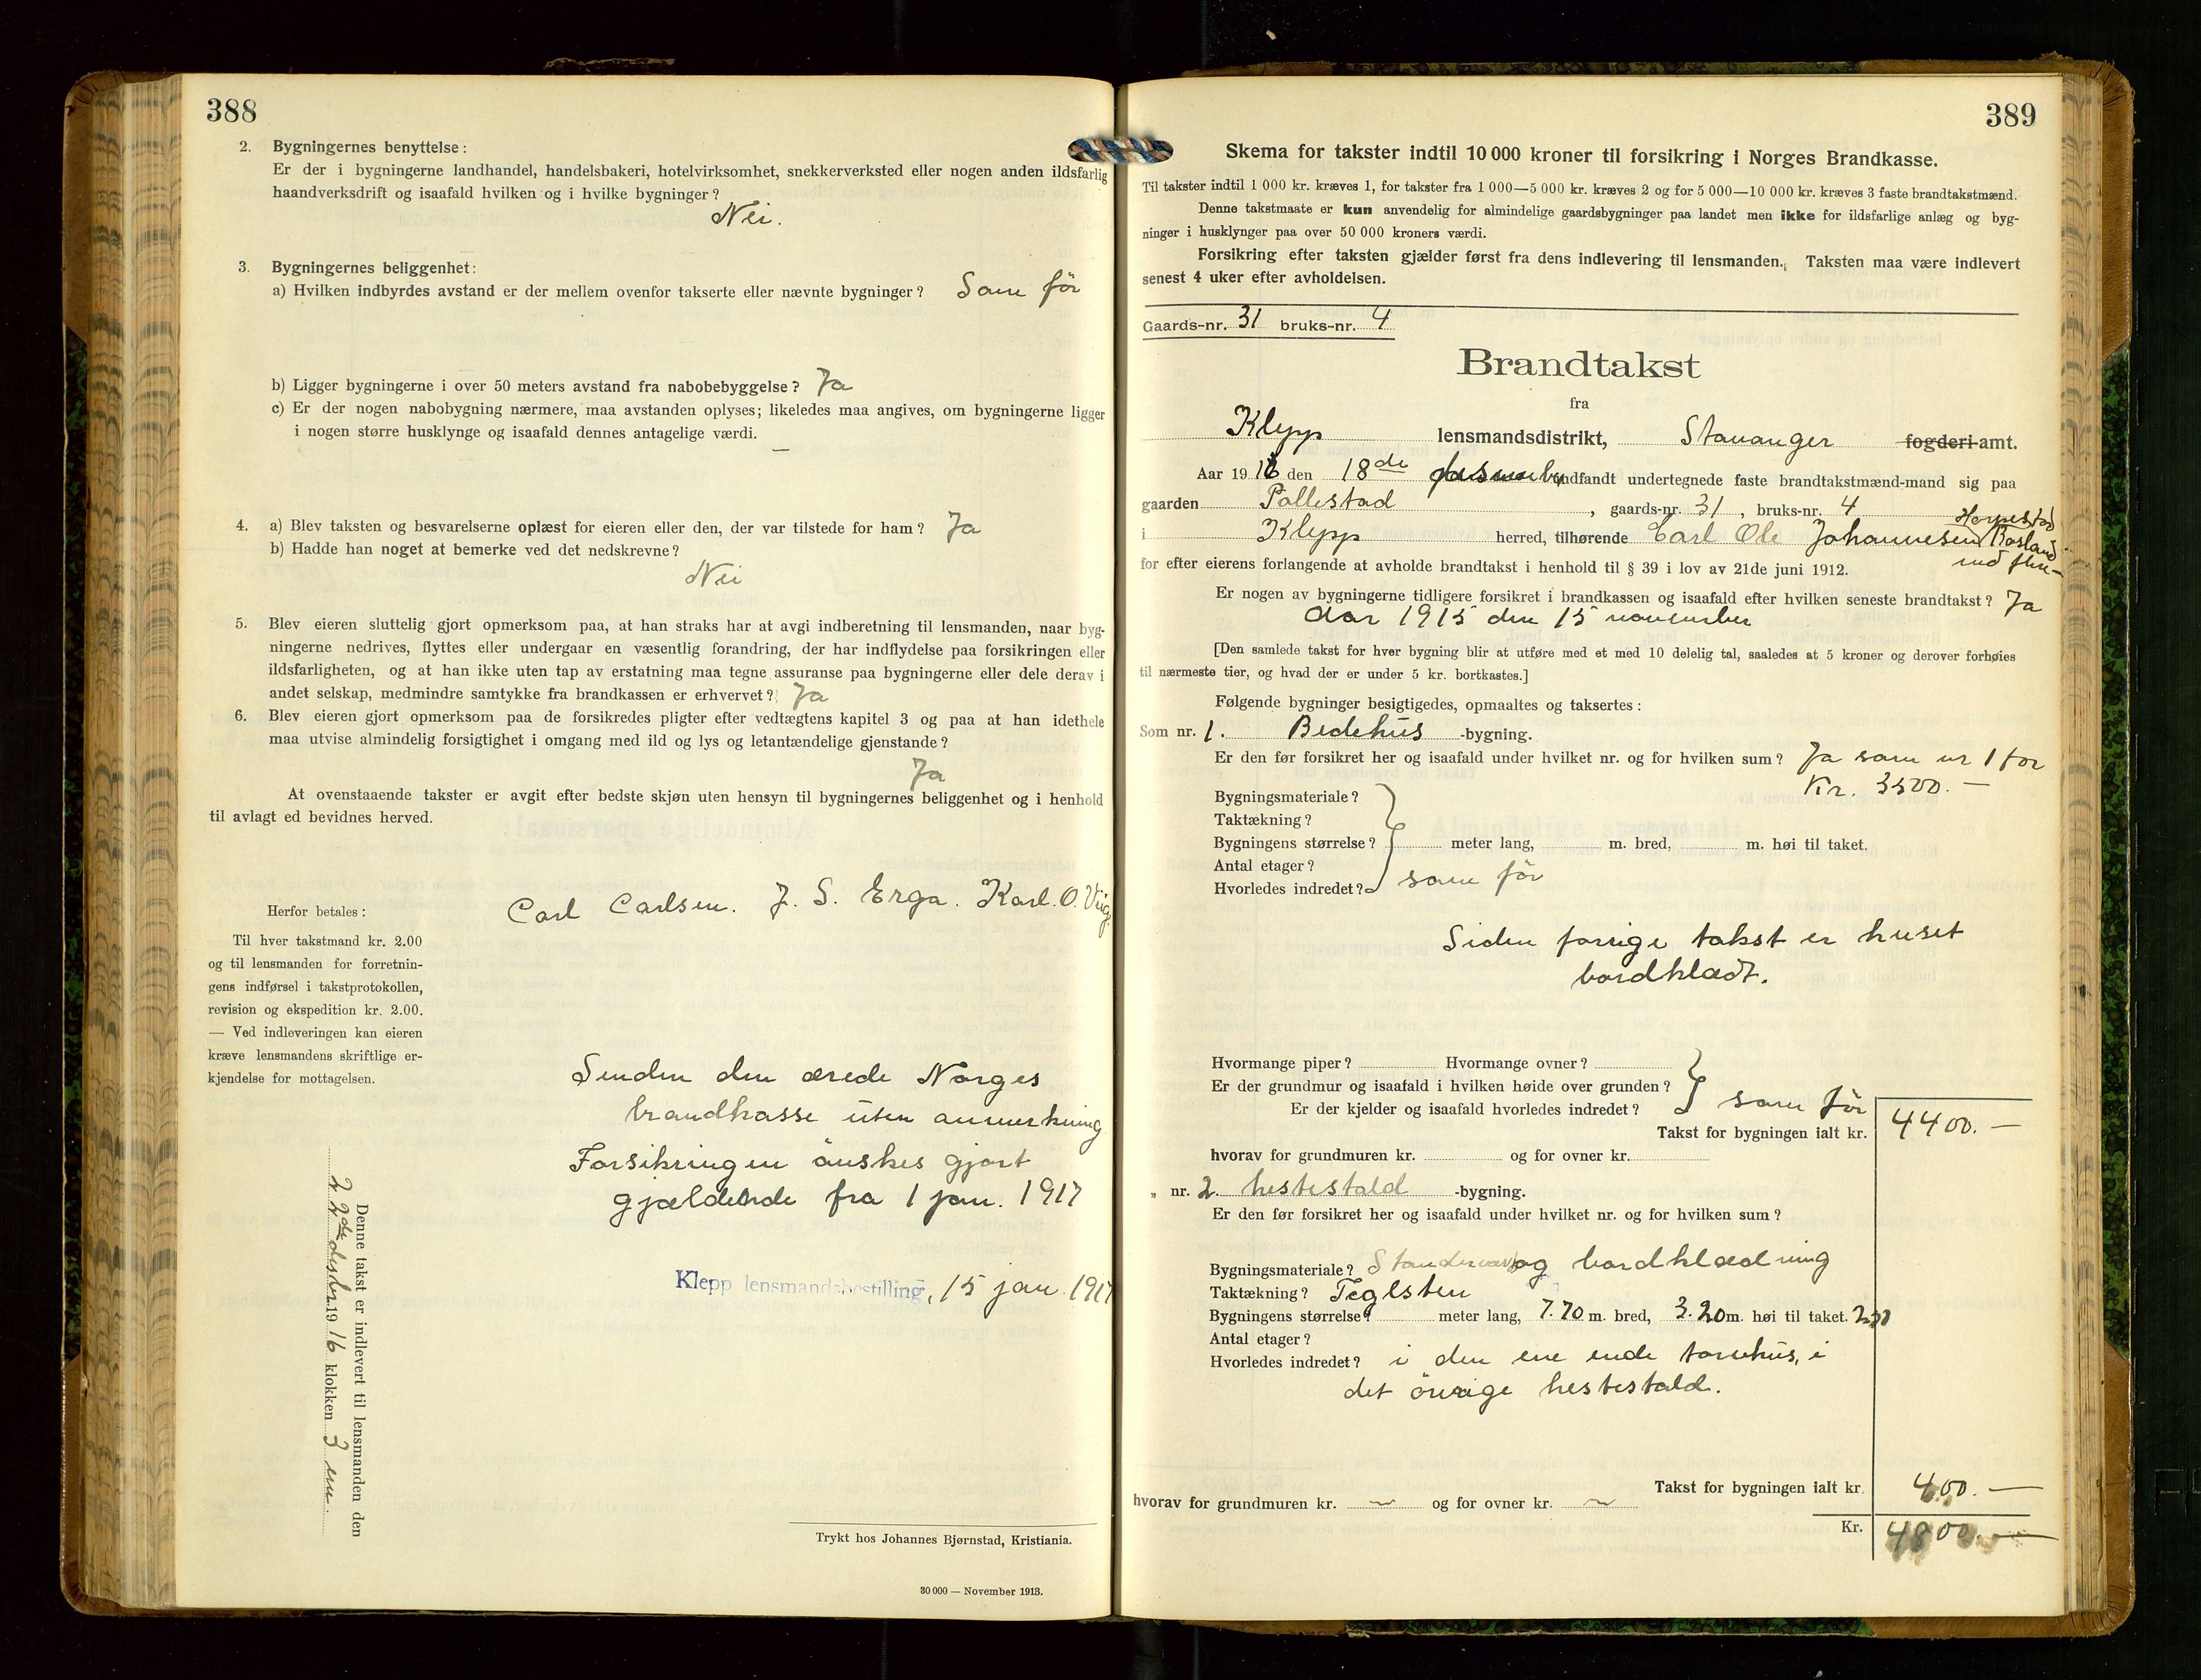 388
2. Bygningernes benyttelse:
Er der i bygningerne landhandel, handelsbakeri, hotelvirksomhet, snekkerverksted eller nogen anden ildsfarlig
haandverksdrift og isaafald hvilken og i hvilke bygninger?
Nei.
3. Bygningernes beliggenhet:
a) Hvilken indbyrdes avstand er der mellem ovenfor takserte eller nævnte bygninger? Som för
b) Ligger bygningerne i over 50 meters avstand fra nabobebyggelse? Ja
c) Er der nogen nabobygning nærmere, maa avstanden oplyses; likeledes maa angives, om bygningerne ligger
i nogen større husklynge og isaafald dennes antagelige værdi.
—
4. a) Blev taksten og besvarelserne oplæst for eieren eller den, der var tilstede for ham? Ja
b) Hadde han noget at bemerke ved det nedskrevne?
Nei
5. Blev eieren sluttelig gjort opmerksom paa, at han straks har at avgi indberetning til lensmanden, naar byg-
ningerne nedrives, flyttes eller undergaar en væsentlig forandring, der har indflydelse paa forsikringen eller
ildsfarligheten, og at han ikke uten tap av erstatning maa tegne assuranse paa bygningerne eller dele derav i
andet selskap, medmindre samtykke fra brandkassen er erhvervet? Ja
6. Blev eieren gjort opmerksom paa de forsikredes pligter efter vedtægtens kapitel 3 og paa at han idethele
maa utvise almindelig forsigtighet i omgang med ild og lys og letantændelige gjenstande?
Ja
At ovenstaaende takster er avgit efter bedste skjøn uten hensyn til bygningernes beliggenhet og i henhold
til avlagt ed bevidnes herved.
Carl Carlsen. J. S. Erga. Karl. O.
Herfor betales:
Til hver takstmand kr. 2.00
og til lensmanden for forretnin-
gens indførsel i takstprotokollen,
revision og ekspedition kr. 2.00.
— Ved indleveringen kan eieren
kræve lensmandens skriftlige er-
kjendelse for mottagelsen.
Senden den ærede Norges
brandkasse uten anmerkning
Forsikringen önskes gjort
gjældende fra 1 jan. 1917
Klepp lensmandsbestilling, 15 jan. 1917
Denne takst er indlevert til lensmanden den
22de desbr. 1916 klokken 3 em.
Trykt hos Johannes Bjørnstad, Kristiania.
30 000 — November 1913.
389
Skema for takster indtil 10 000 kroner til forsikring i Norges Brandkasse.
Til takster indtil 1 000 kr. kræves 1, for takster fra 1 000—5 000 kr. kræves 2 og for 5 000—10 000 kr. kræves 3 faste brandtakstmænd.
Denne takstmaate er kun anvendelig for almindelige gaardsbygninger paa landet men ikke for ildsfarlige anlæg og byg-
ninger i husklynger paa over 50 000 kroners værdi.
Forsikring efter taksten gjælder først fra dens indlevering til lensmanden. Taksten maa være indlevert
senest 4 uker efter avholdelsen.
Gaards-nr. 31 bruks-nr. 4
Brandtakst
fra
Klepp lensmandsdistrikt, Stavanger fogderi-amt.
Aar 1916 den 18de desember indfandt undertegnede faste brandtakstmænd-mand sig paa
gaarden Pollestad, gaards-nr. 31, bruks-nr. 4
Horpestad
i Klepp herred, tilhørende Carl Ole Johannesen Rosland
med flere
for efter eierens forlangende at avholde brandtakst i henhold til § 39 i lov av 21de juni 1912.
Er nogen av bygningerne tidligere forsikret i brandkassen og isaafald efter hvilken seneste brandtakst? Ja
Aar 1915 den 15 november
[Den samlede takst for hver bygning blir at utføre med et med 10 delelig tal, saaledes at 5 kroner og derover forhøies
til nærmeste tier, og hvad der er under 5 kr. bortkastes.]
Følgende bygninger besigtigedes, opmaaltes og taksertes:
Som nr. 1. Bedehus -bygning.
Er den før forsikret her og isaafald under hvilket nr. og for hvilken sum? Ja som nr 1 for
Kr. 3500. —
Bygningsmateriale?
Taktækning?
Bygningens størrelse? meter lang, m. bred, m. høi til taket.
Antal etager?
Hvorledes indredet? som för
Siden forrige takst er huset
bordklædt.
Hvormange piper? Hvormange ovner?
Er der grundmur og isaafald i hvilken høide over grunden?
Er der kjelder og isaafald hvorledes indredet? som för
Takst for bygningen ialt kr. 4400. —
hvorav for grundmuren kr. og for ovner kr.
„ nr. 2. hestestald -bygning.
Er den før forsikret her og isaafald under hvilket nr. og for hvilken sum?
Bygningsmateriale? Standerverk og bordklædning
Taktækning? Teglsten
Bygningens størrelse? meter lang, 7.70 m. bred, 3.20 m. høi til taket.
Antal etager?
Hvorledes indredet? i den ene ende torvehus, i
det övrige hestestald.
Takst for bygningen ialt kr. 400. —
hvorav for grundmuren kr. ~ og for ovner kr. ~
Kr. 4800. —